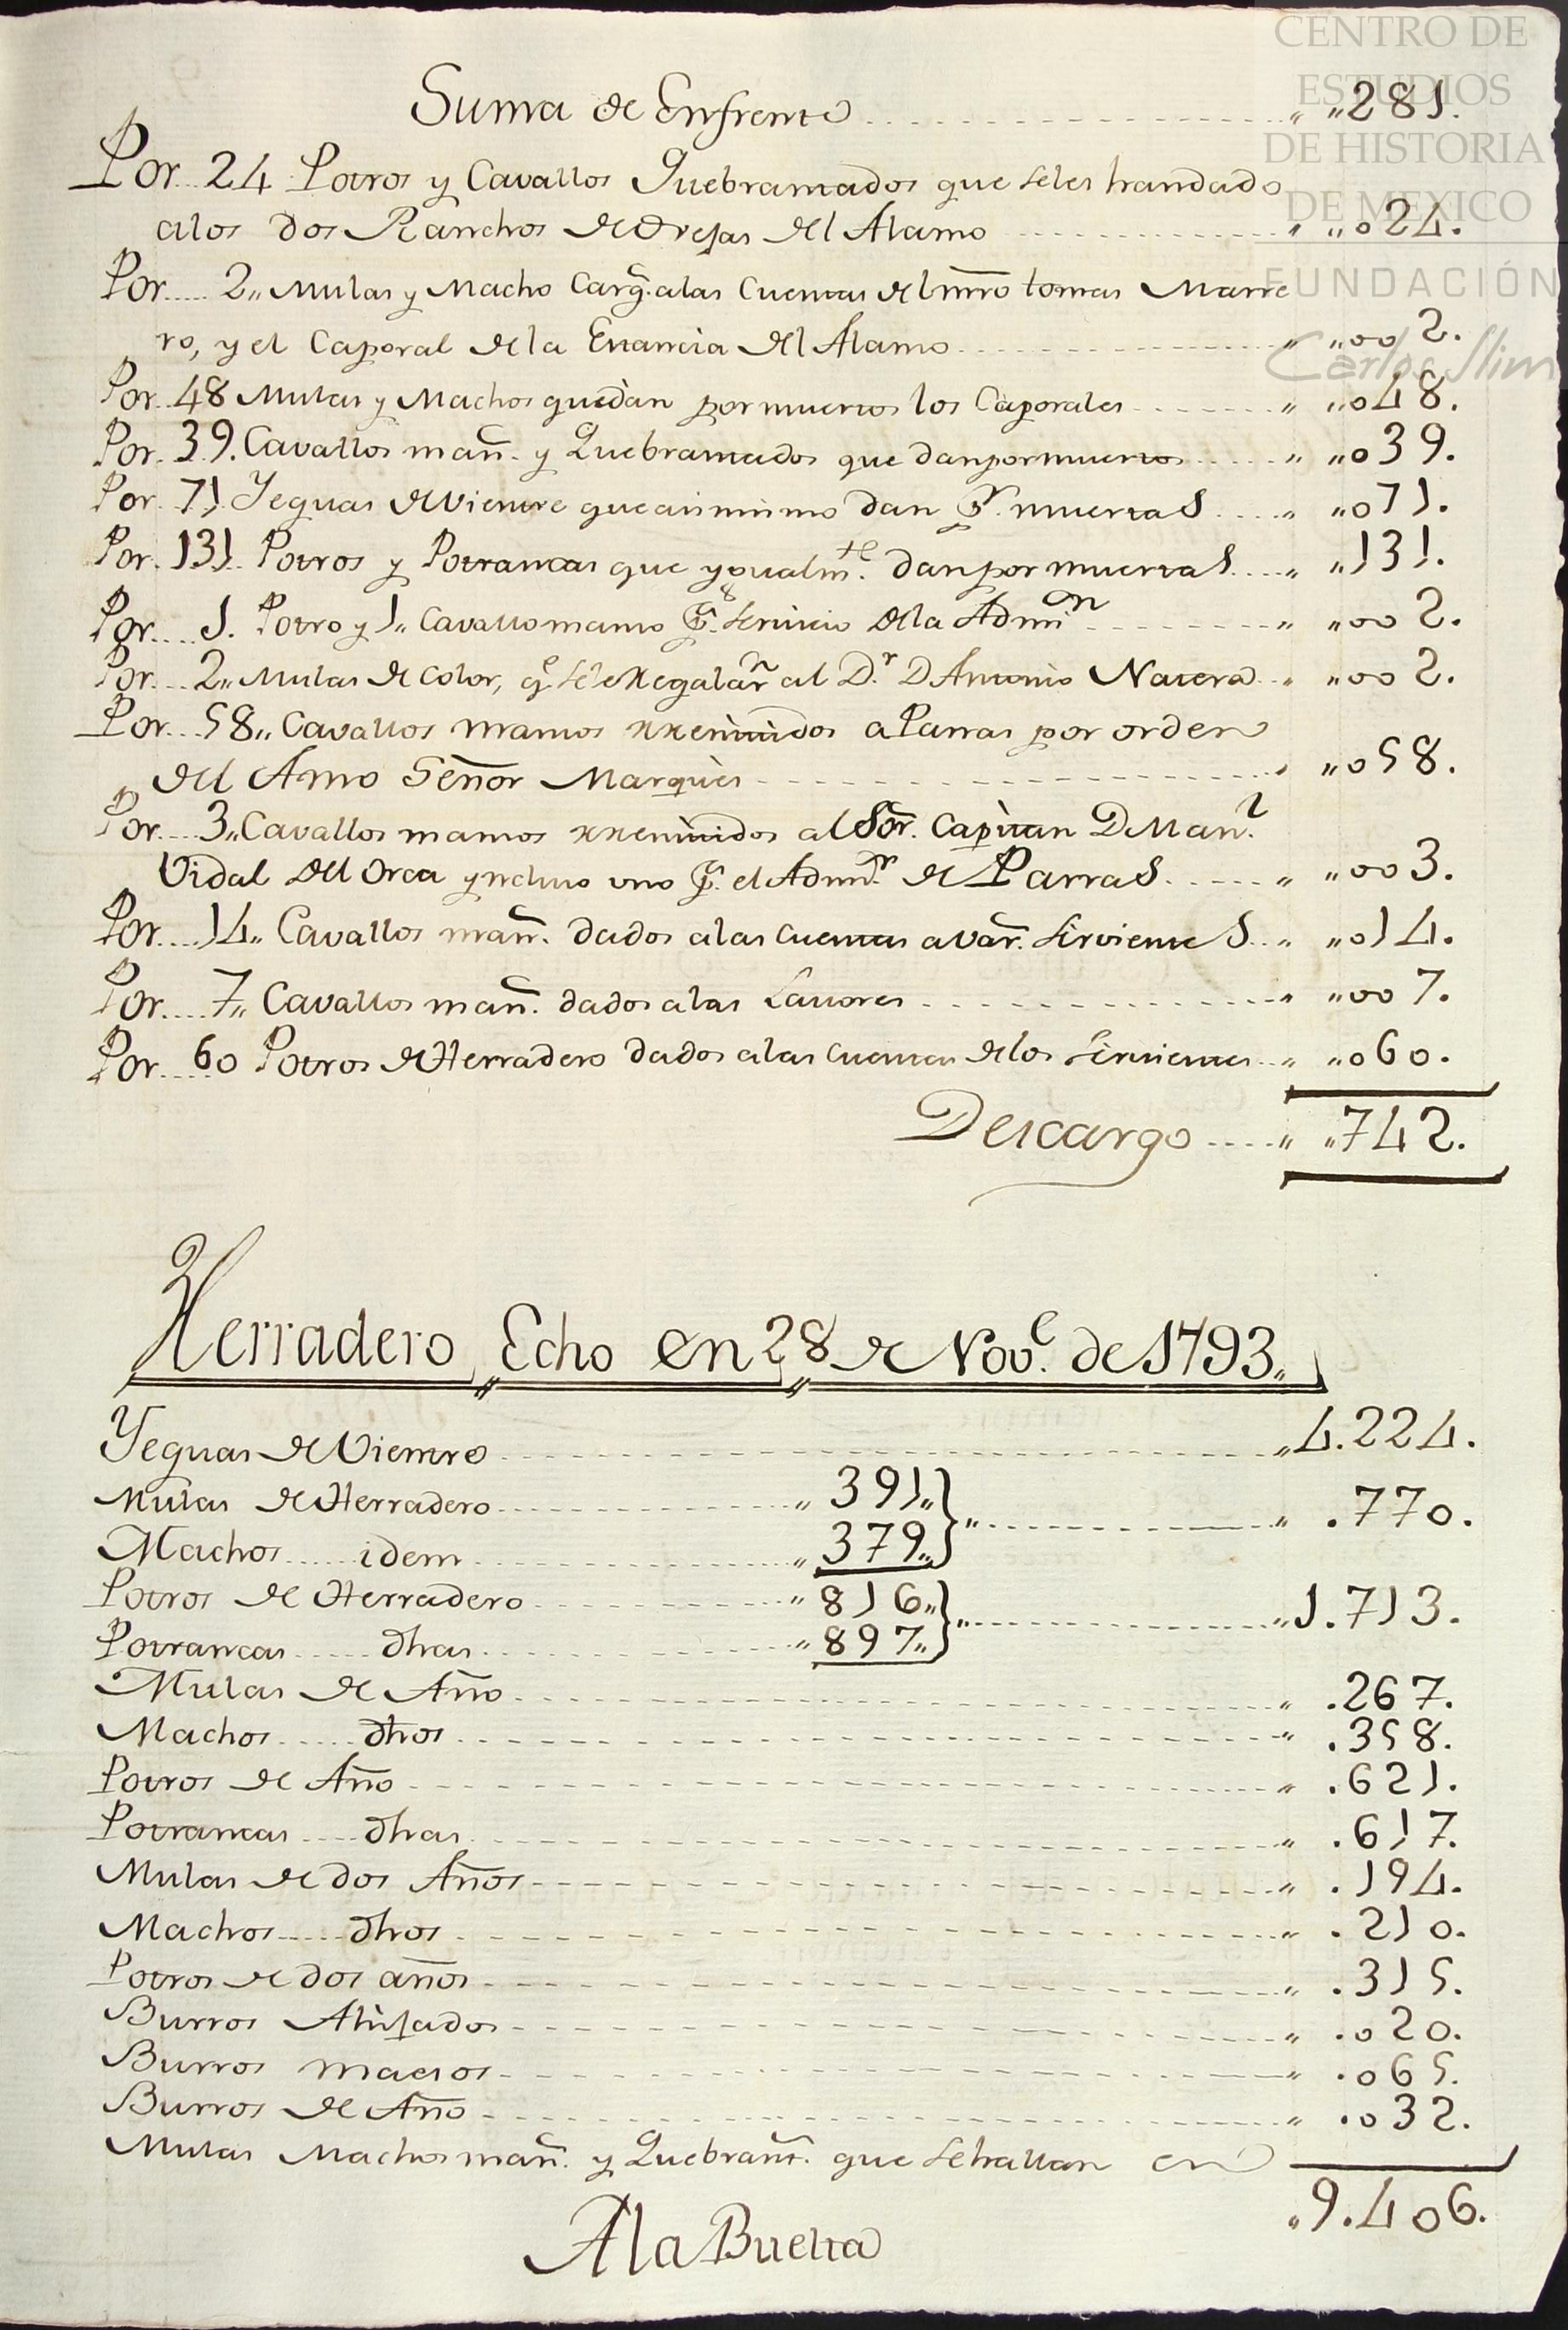 CENTRO DE
ESTUDIOS
DE HISTORIA
DE MEXICO
FUNDACIÓN
Carlos Slim
Suma de Enfrente ,, ,,281.
Por 24 Potros y Cavallos Quebrantados que seles handado
alos dos Ranchos de Orejas del Alamo ,, ,,024.
Por 2,, Mulas y Macho Carg. alas Cuentas del mro tomas Marre
ro, y el Caporal dela Estancia del Alamo ,, ,,002.
Por 48 Mulas y Machos quedàn pormuertos los Caporales ,, ,,048.
Por 39. Cavallos mañ. y Quebrantados que danpormuertos ,, ,,039.
Por 71 Yeguas deVientre queasimismo dan Pr. muertas ,, ,,071.
Por 131 Potros y Potrancas que ygualmte. danpormuertas ,, ,,131.
Por 1. Potro y 1,, Cavallo manso Pr. servicio dela Admon ,, ,,002.
Por 2,, Mulas de color, qe sele Regalarn al Dr. D Antonio Natera ,, ,,002.
Por 58,, Cavallos mansos rremitidos aParras por orden
del Amo Señor Marquès ,, ,,058.
Por 3,, Cavallos mansos rremitidos al Sor. Capitan D Manl.
Vidal del Orca yncluso uno Pr. el Admor. de Parras ,, ,,003.
Por 14,, Cavallos mañ. dados alas cuentas avar. sirvientes ,, ,,014.
Por 7,, Cavallos mañ. dados alas Lavores ,, ,,007.
Por 60 Potros deHerradero dados alas cuentas delos sirvientes ,, ,,060.
Descargo ,, ,,742.
Herradero,, Echo en 28,, de Nove. de 1793,,
Yeguas deVientre ,,4.224.
Mulas deHerradero ,, 391,,
,, .770.
Machos idem ,, 379,,
Potros de Herradero ,, 816,,
,,1.713.
Potrancas dhas ,, 897,,
Mulas de Año ,, .267.
Machos dhos ,, .358.
Potros de Año ,, .621.
Potrancas dhas ,, .617.
Mulas de dos Años ,, .194.
Machos dhos ,, .210.
Potros de dos años ,, .315.
Burros Ahijados ,, .020.
Burros maesos ,, .065.
Burros de Año ,, .032.
Mulas Machos mañ. y Quebrant. que sehallan en
,,9.406.
AlaBuelta